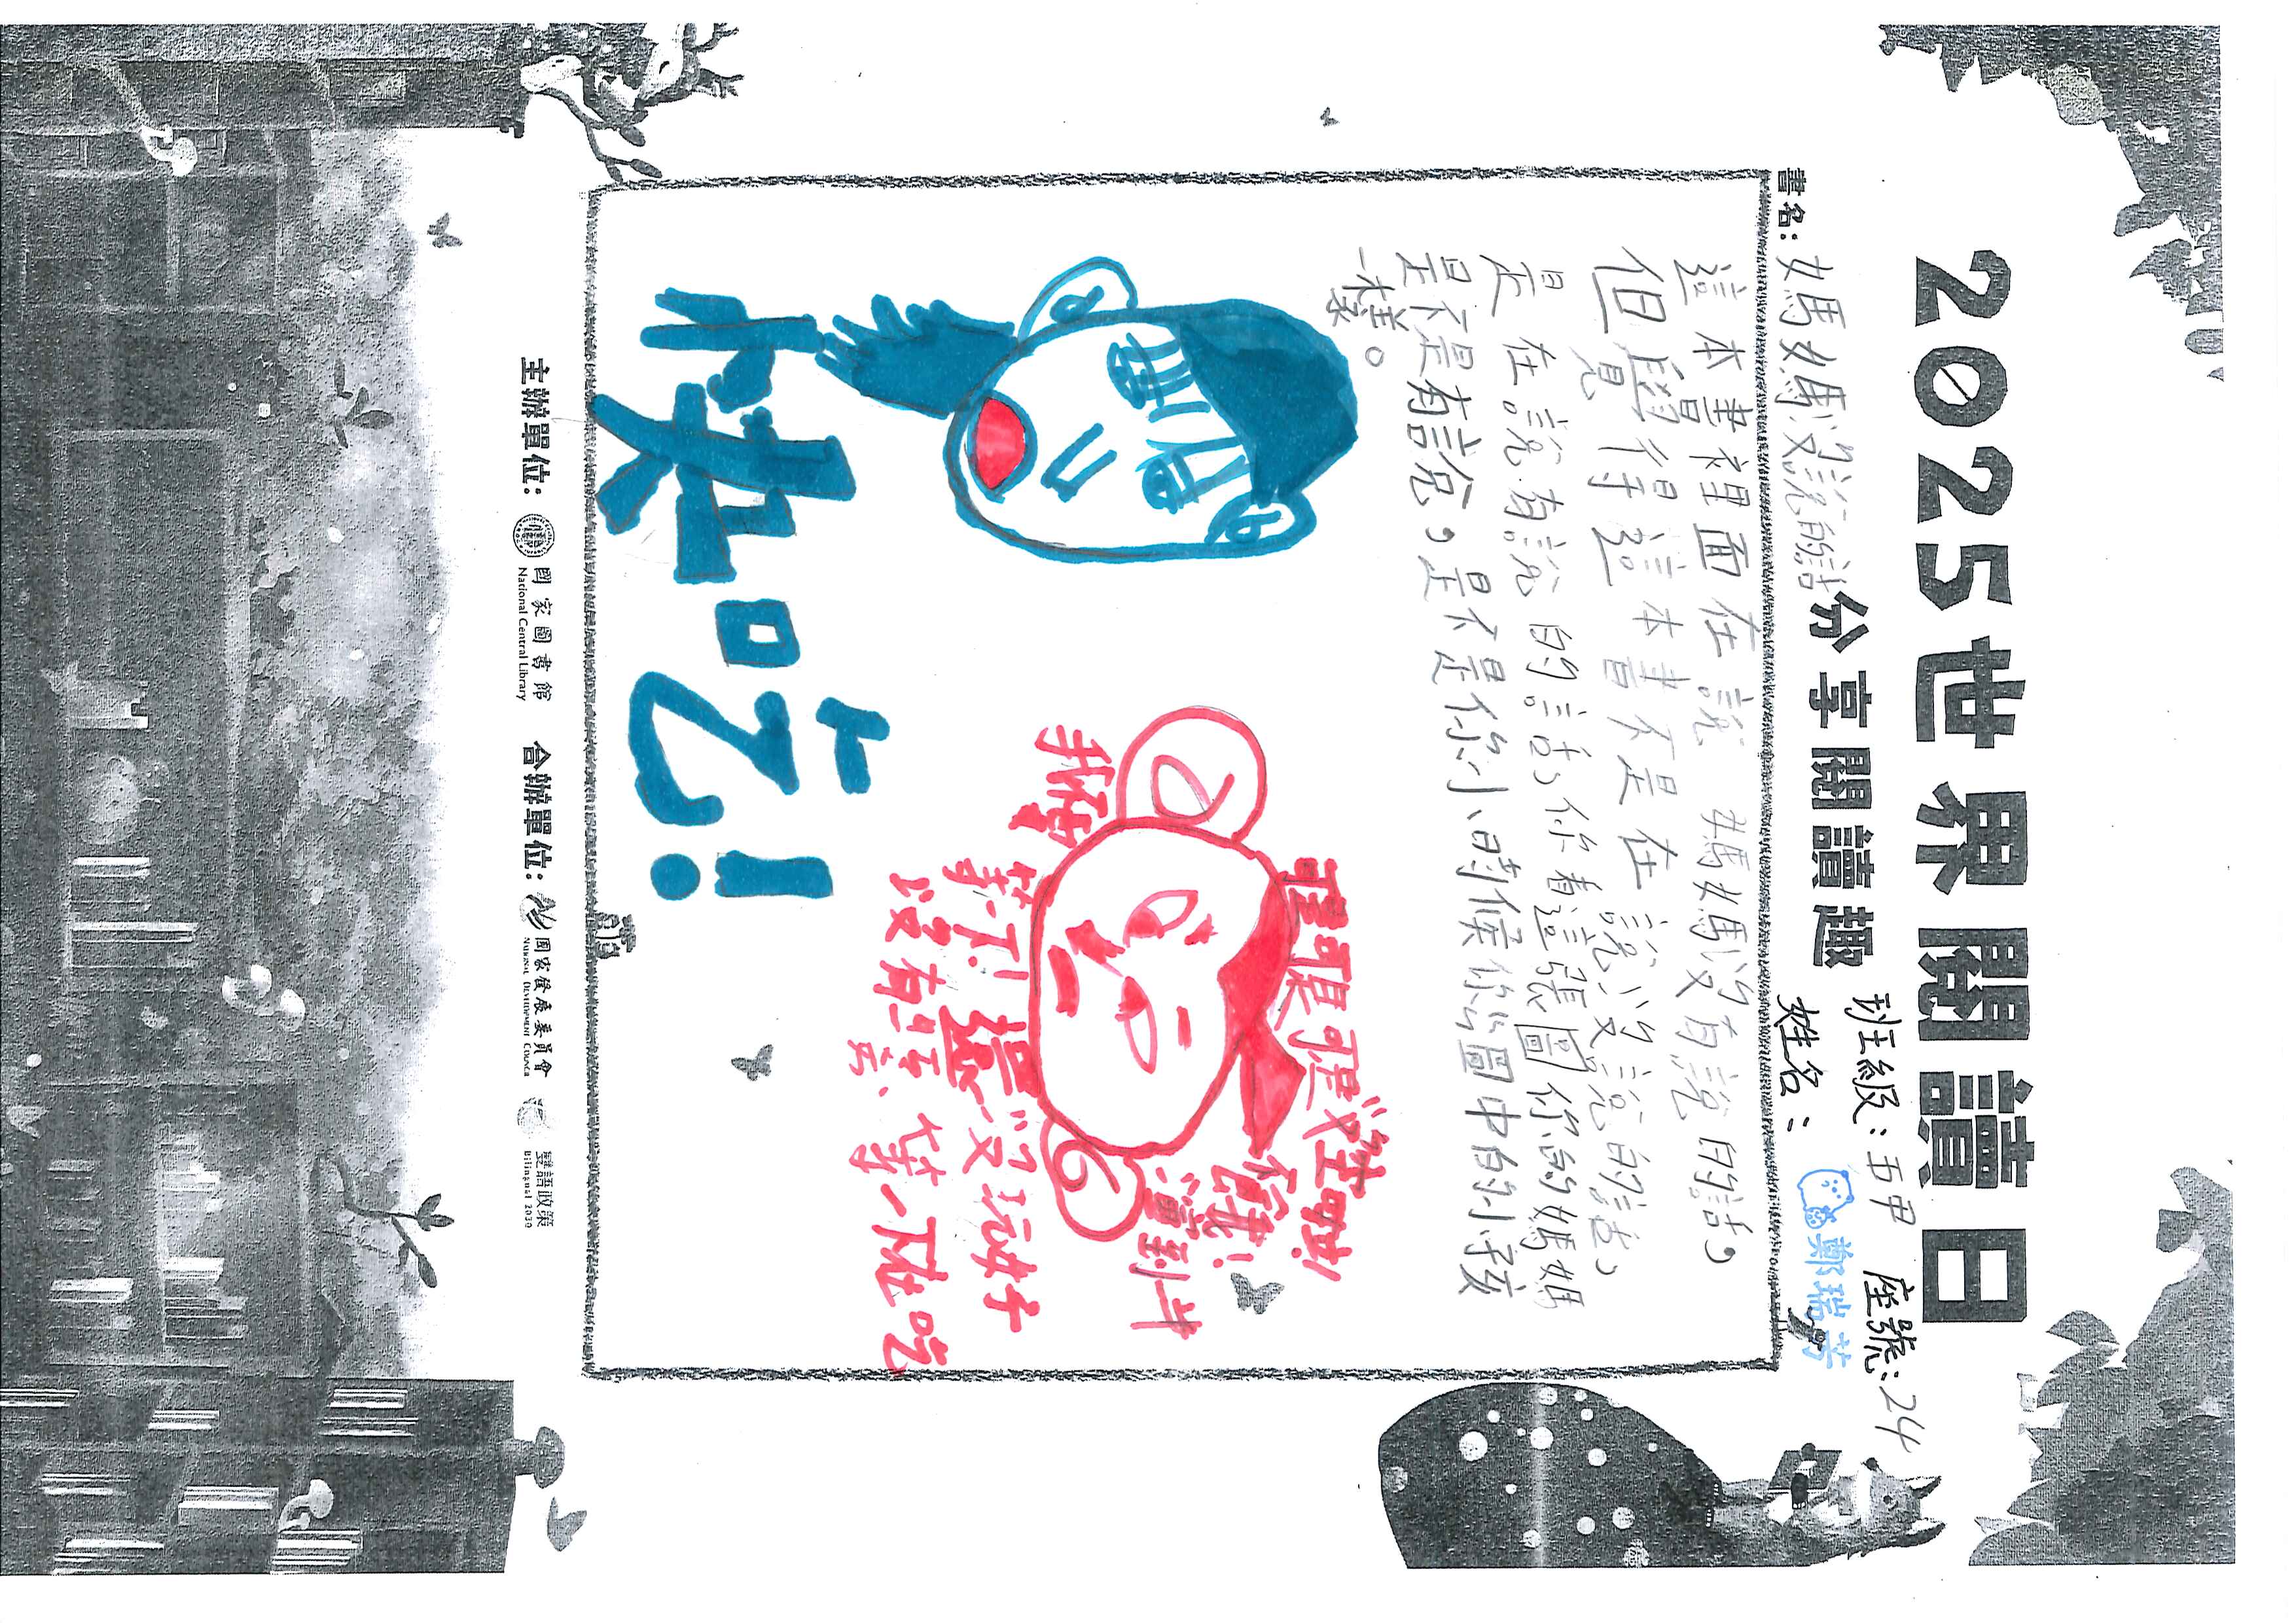 2025世界閱讀日
分享閱讀趣
班級：五甲 座號：24
姓名： 鄭瑞芳
書名：媽媽沒說的話
這本書裡面在說 媽媽沒有說的話，
但我覺得這本書不是在說沒說的話，
是在說有說的話，你看這張圖你的媽媽
是不是有說，是不是你小時候你圖中的小孩
一樣。
快吃！
我會
等一下！
還沒玩好
沒有
等一下在吃
主辦單位：國家圖書館
National Central Library
合辦單位：國家發展委員會
National Development Council
雙語政策
Bilingual 2030